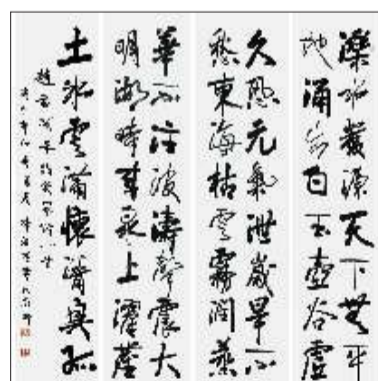 濼水發源天下無平
地涌出白玉壺谷虛
久恐元氣泄歲旱不
愁東海枯雲霧潤蒸
華不注波濤聲震大
明湖時來泉上濯塵
土冰雪滿懷清興孤